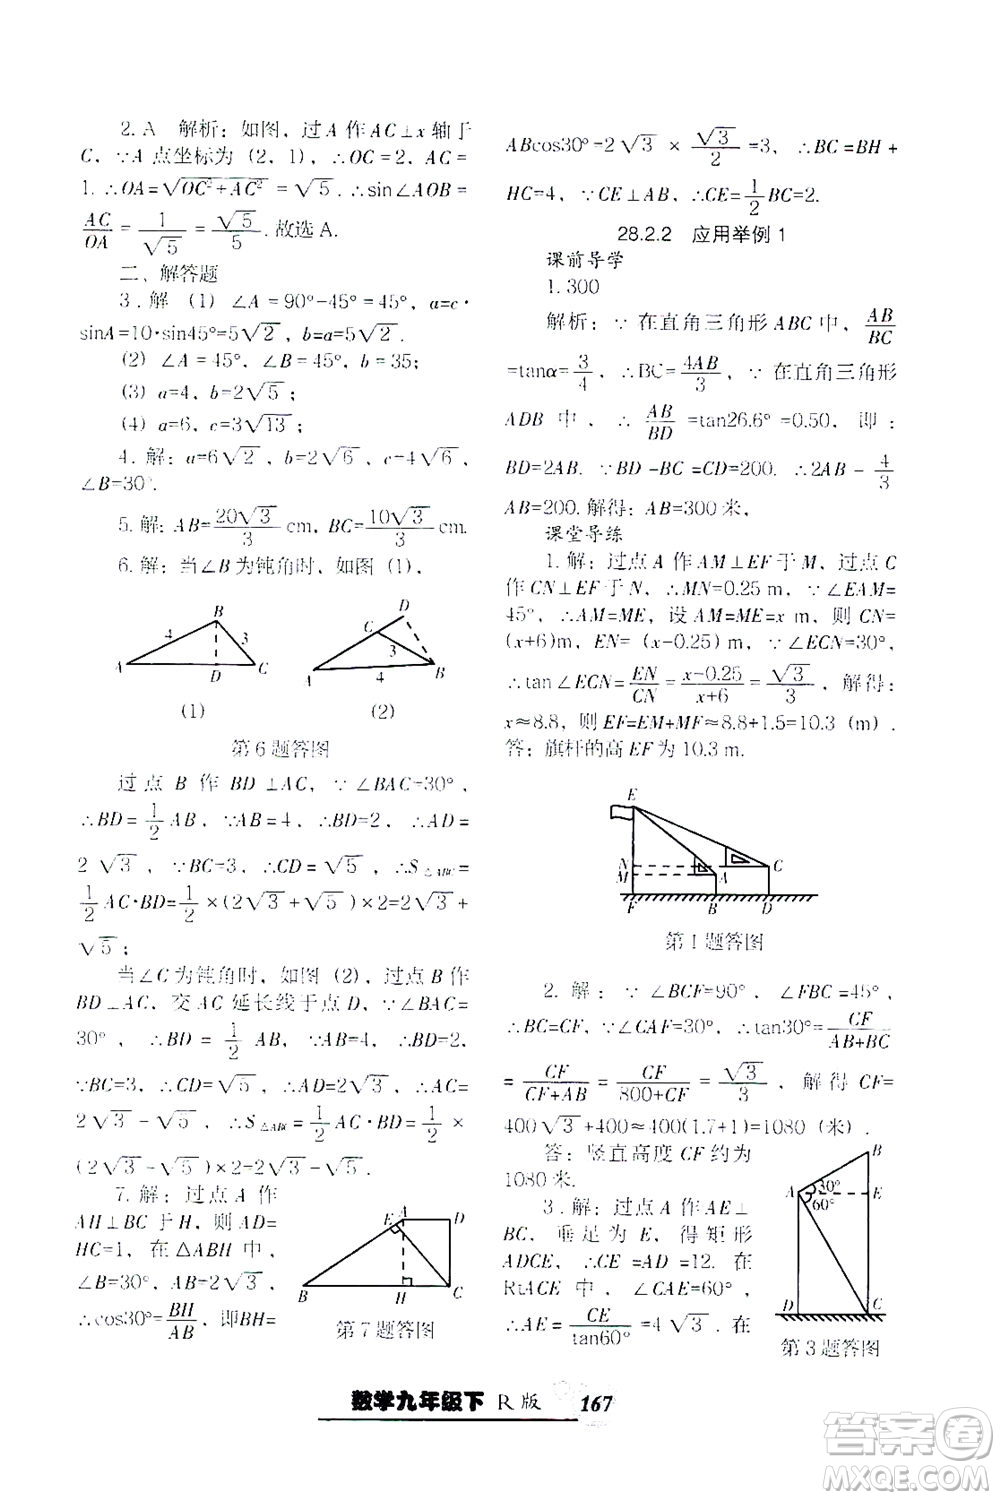 2. A　解析：如图，过 A 作 AC⊥x 轴于
C，∵A 点坐标为（2，1），∴OC=2，AC=
1. ∴OA=√(OC²+AC²)=√5. ∴sin∠AOB=
AC/OA=1/√5=√5/5. 故选 A.
二、解答题
3. 解（1）∠A=90°-45°=45°，a=c·
sinA=10·sin45°=5√2，b=a=5√2；
（2）∠A=45°，∠B=45°，b=35；
（3）a=4，b=2√5；
（4）a=6，c=3√13；
4. 解：a=6√2，b=2√6，c=4√6，
∠B=30°.
5. 解：AB=20√3/3 cm，BC=10√3/3 cm.
6. 解：当∠B为钝角时，如图（1），
B 4 3 A D C
D C 3 A 4 B
（1）　（2）
第 6 题答图
过点 B 作 BD⊥AC，∵∠BAC=30°，
∴BD=1/2 AB，∵AB=4，∴BD=2，∴AD=
2√3，∵BC=3，∴CD=√5，∴S△ABC=
1/2 AC·BD=1/2×(2√3+√5)×2=2√3+
√5；
当∠C为钝角时，如图（2），过点 B 作
BD⊥AC，交 AC 延长线于点 D，∵∠BAC=
30°，∴BD=1/2 AB，∵AB=4，∴BD=2，
∵BC=3，∴CD=√5，∴AD=2√3，∴AC=
2√3-√5，∴S△ABC=1/2 AC·BD=1/2×
(2√3-√5)×2=2√3-√5.
7. 解：过点 A 作
AH⊥BC 于 H，则 AD=
HC=1，在△ABH 中，
∠B=30°，AB=2√3，
∴cos30°=BH/AB，即BH=
E A D B H C
第 7 题答图
ABcos30°=2√3×√3/2=3，∴BC=BH+
HC=4，∵CE⊥AB，∴CE=1/2 BC=2.
28.2.2　应用举例 1
课前导学
1. 300
解析：∵在直角三角形 ABC 中，AB/BC
=tanα=3/4，∴BC=4AB/3，∵在直角三角形
ADB 中，∴AB/BD=tan26.6°=0.50，即：
BD=2AB. ∵BD-BC=CD=200. ∴2AB-4/3
AB=200. 解得：AB=300 米，
课堂导练
1. 解：过点 A 作 AM⊥EF于 M，过点 C
作 CN⊥EF于 N，∴MN=0.25 m，∵∠EAM=
45°，∴AM=ME，设 AM=ME=x，则 CN=
(x+6)m，EN=（x-0.25）m，∵∠ECN=30°，
∴tan∠ECN=EN/CN=x-0.25/x+6=√3/3，解得：
x≈8.8，则 EF=EM+MF≈8.8+1.5=10.3（m）.
答：旗杆的高 EF 为 10.3 m.
E N M A C F B D
第 1 题答图
2. 解：∵∠BCF=90°，∠FBC=45°，
∴BC=CF，∵∠CAF=30°，∴tan30°=CF/AB+BC
=CF/CF+AB=CF/800+CF=√3/3，解得 CF=
400√3+400≈400(1.7+1)=1080（米）.
答：竖直高度 CF 约为
1080 米.
3. 解：过点 A 作 AE⊥
BC，垂足为 E，得矩形
ADCE，∴CE=AD=12. 在
Rt ACE 中，∵∠CAE=60°，
∴AE=CE/tan60°=4√3. 在
B A 30° 60° E D C
第 3 题答图
数学九年级下　R 版　167
答案圈
MXQE.COM